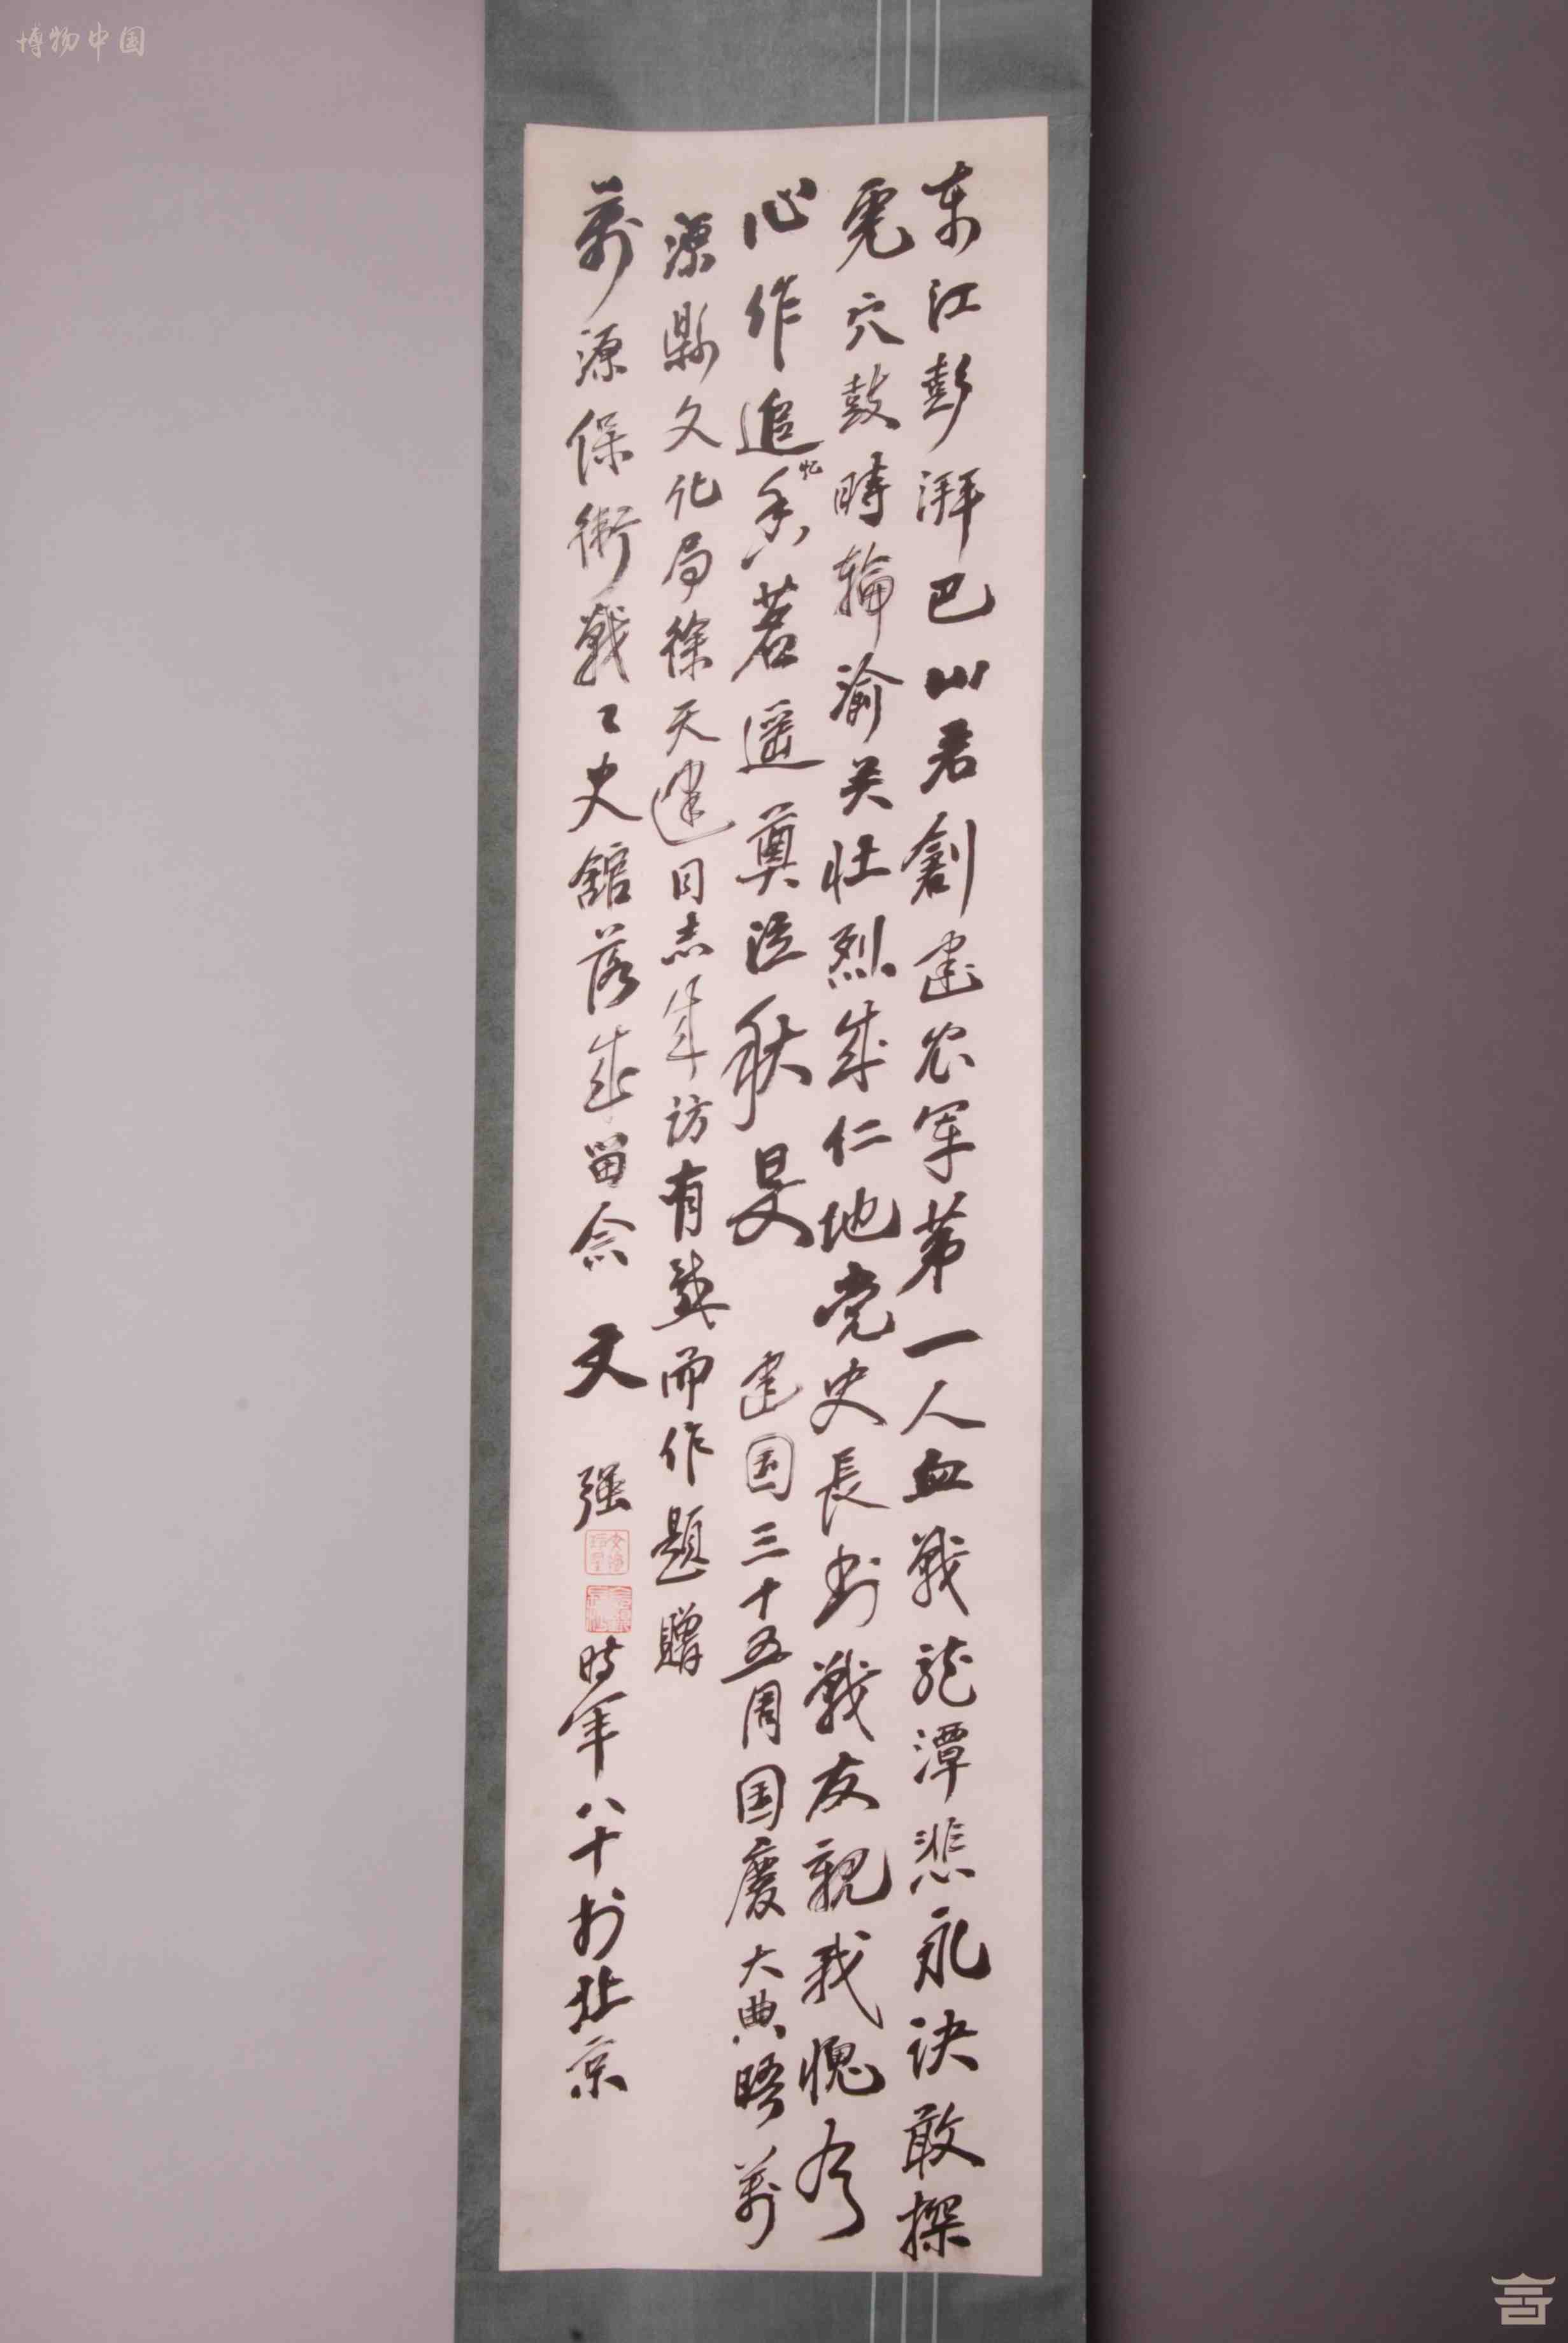 博物中国
东江彭湃巴山君創建农军第一人血戰龙潭悲永诀敢探
虎穴鼓時輪渝关壮烈成仁地党史長书戰友親我愧有
心作追忆香茗遥奠泣秋旻 建国三十五周国慶大典晤萬
源縣文化局徐天同志来访有感而作题贈
萬源保衛戰々史館落成留念 文强 时年八十於北京